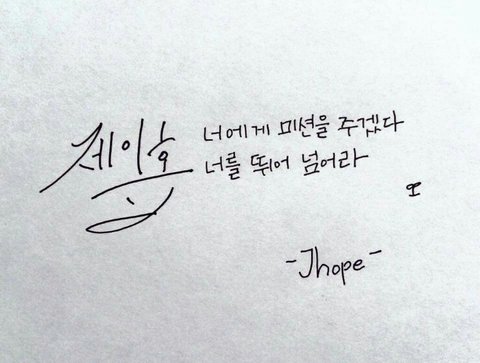 제이홉
너에게 미션을 주겠다
너를 뛰어 넘어라
-Jhope-